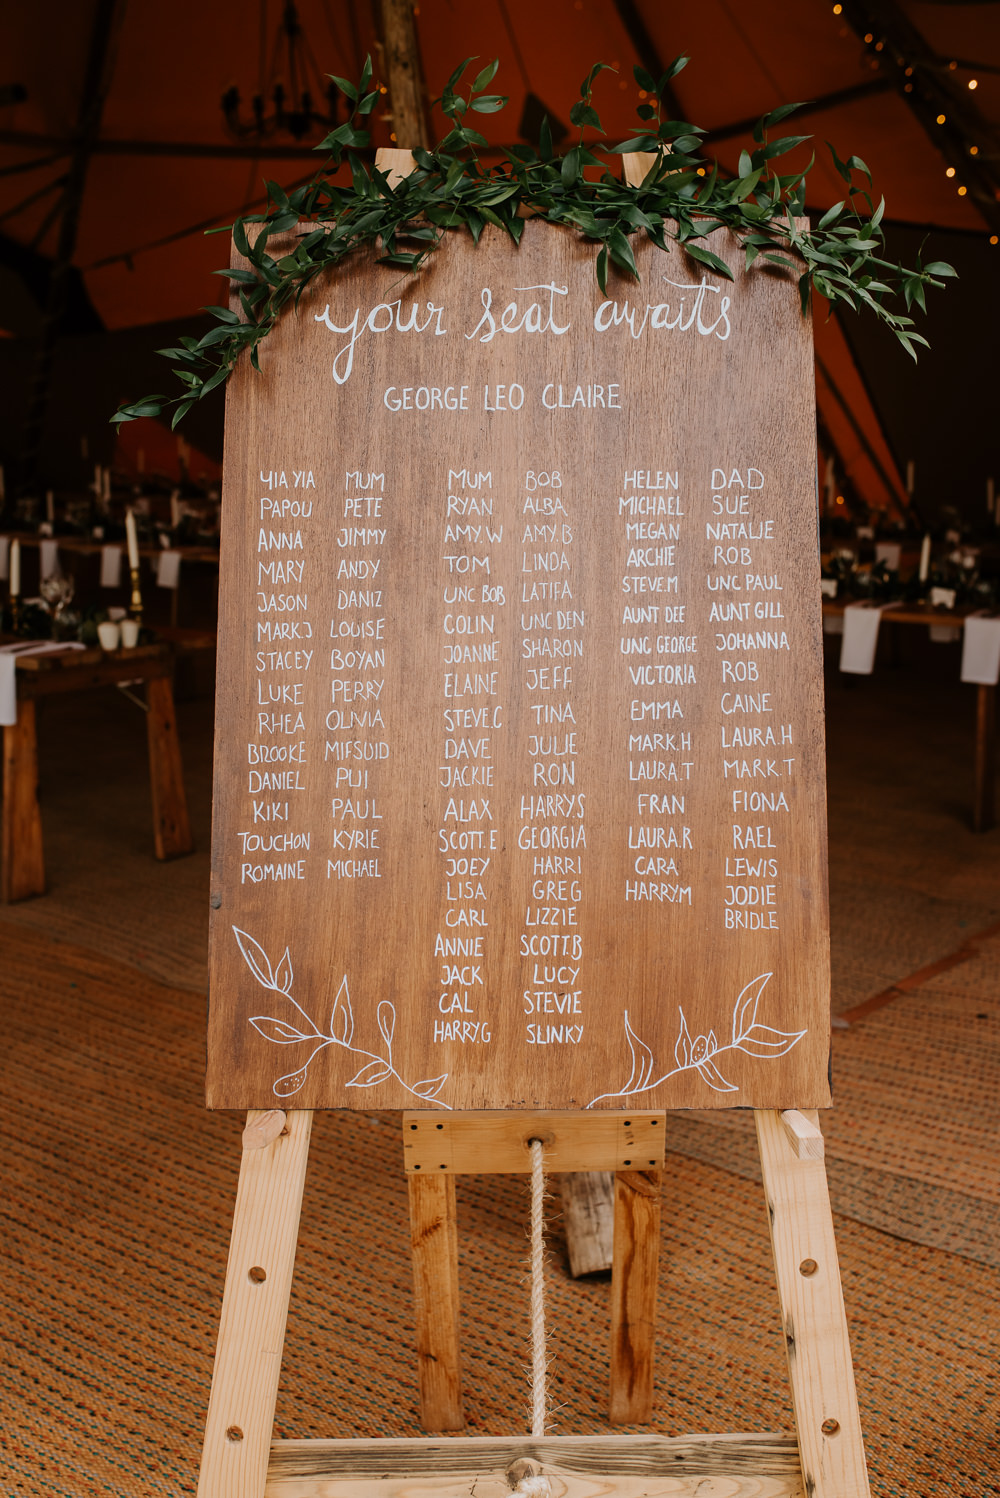 your seat awaits
GEORGE LEO CLAIRE
YIA YIA MUM
PAPOU PETE
ANNA JIMMY
MARY ANDY
JASON DANIZ
MARK.J LOUISE
STACEY BOYAN
LUKE PERRY
RHEA OLIVIA
BROOKE MIFSUID
DANIEL PUI
KIKI PAUL
TOUCHON KYRIE
ROMAINE MICHAEL
MUM BOB
RYAN ALBA
AMY.W AMY.B
TOM LINDA
UNC BOB LATIFA
COLIN UNC DEN
JOANNE SHARON
ELAINE JEFF
STEVE.C TINA
DAVE JULIE
JACKIE RON
ALAX HARRY.S
SCOTT.E GEORGIA
JOEY HARRI
LISA GREG
CARL LIZZIE
ANNIE SCOTT.B
JACK LUCY
CAL STEVIE
HARRY.G SLINKY
HELEN DAD
MICHAEL SUE
MEGAN NATALIE
ARCHIE ROB
STEVE.M UNC PAUL
AUNT DEE AUNT GILL
UNC GEORGE JOHANNA
VICTORIA ROB
EMMA CAINE
MARK.H LAURA.H
LAURA.T MARK.T
FRAN FIONA
LAURA.R RAEL
CARA LEWIS
HARRY.M JODIE
BRIDLE